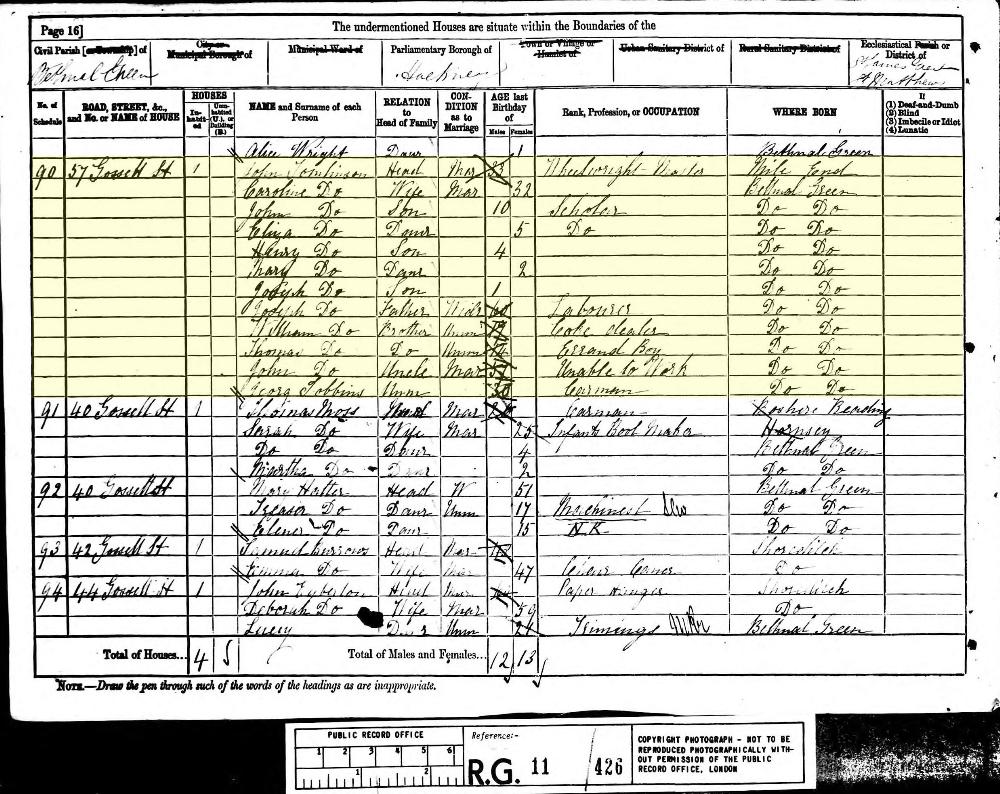 Page 16]
The undermentioned Houses are situate within the Boundaries of the
Civil Parish [or Township] of
City or Municipal Borough of
Municipal Ward of
Parliamentary Borough of
Town or Village or Hamlet of
Urban Sanitary District of
Rural Sanitary District of
Ecclesiastical Parish or District of
Bethnal Green
Hackney
St James Great
St Matthews
No. of Schedule
ROAD, STREET, &c., and No. or NAME of HOUSE
HOUSES
Inhabited
Uninhabited (U.), or Building (B.)
NAME and Surname of each Person
RELATION to Head of Family
CONDITION as to Marriage
AGE last Birthday of
Males
Females
Rank, Profession, or OCCUPATION
WHERE BORN
If
(1) Deaf-and-Dumb
(2) Blind
(3) Imbecile or Idiot
(4) Lunatic
Alice Wright Daur 1 Bethnal Green
90 57 Gossett St 1 John Tomlinson Head Mar Wheelwright Master Mile End
Caroline Do Wife Mar 32 Bethnal Green
John Do Son 10 Scholar Do Do
Eliza Do Daur 5 Do Do Do
Henry Do Son 4 Do Do
Mary Do Daur 2 Do Do
Joseph Do Son 1 Do Do
Joseph Do Father Widr 60 Labourer Do Do
William Do Brother Unm Coke dealer Do Do
Thomas Do Do Unm Errand Boy Do Do
John Do Uncle Mar Unable to Work Do Do
Georg Unm Carman Do Do
91 40 Gossett St 1 Thomas Moss Head Mar Carman Reading
Sarah Do Wife Mar 25 Infants Boot Maker Hornsey
Do Do Daur 4 Bethnal Green
Martha Do Daur 2 Do Do
92 40 Gossett St Mary Hatter Head W 51 Bethnal Green
Do Daur Unm 17 Machinest Do Do
Do Daur 15 N.K. Do Do
93 42 Gossett St 1 Samuel Burrows Head Mar Shoreditch
Emma Do Wife Mar 47 Do
94 44 Gossett St 1 John Head Mar Paper Hanger Shoreditch
Deborah Do Wife Mar 59 Do
Lucey Daur Unm 24 Trimings Bethnal Green
Total of Houses... 4
Total of Males and Females... 12 13
NOTE.—Draw the pen through such of the words of the headings as are inappropriate.
PUBLIC RECORD OFFICE
1 2 3 4 5 6
1 2
Reference:-
R.G. 11 / 426
COPYRIGHT PHOTOGRAPH - NOT TO BE
REPRODUCED PHOTOGRAPHICALLY WITH-
OUT PERMISSION OF THE PUBLIC
RECORD OFFICE, LONDON